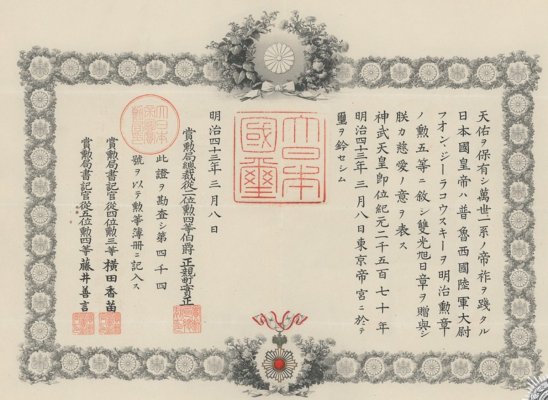 天佑ヲ保有シ萬世一系ノ帝祚ヲ踐タル
日本國皇帝ハ普魯西國陸軍大尉
フオン、ジーラコウスキーヲ明治勲章
ノ勲五等ニ敘シ雙光旭日章ヲ贈與シ
朕カ慈愛ノ意ヲ表ス
神武天皇即位紀元二千五百七十年
明治四十三年三月八日東京帝宮ニ於テ
璽ヲ鈐セシム
大日本國璽
明治四十三年三月八日
賞勲局總裁從二位勲四等伯爵正親町實正
此證ヲ勘査シ第四千四
號ヲ以テ勲等簿册ニ記入ス
賞勲局書記官從四位勲三等横田香苗
賞勲局書記官從五位勲四等藤井善言